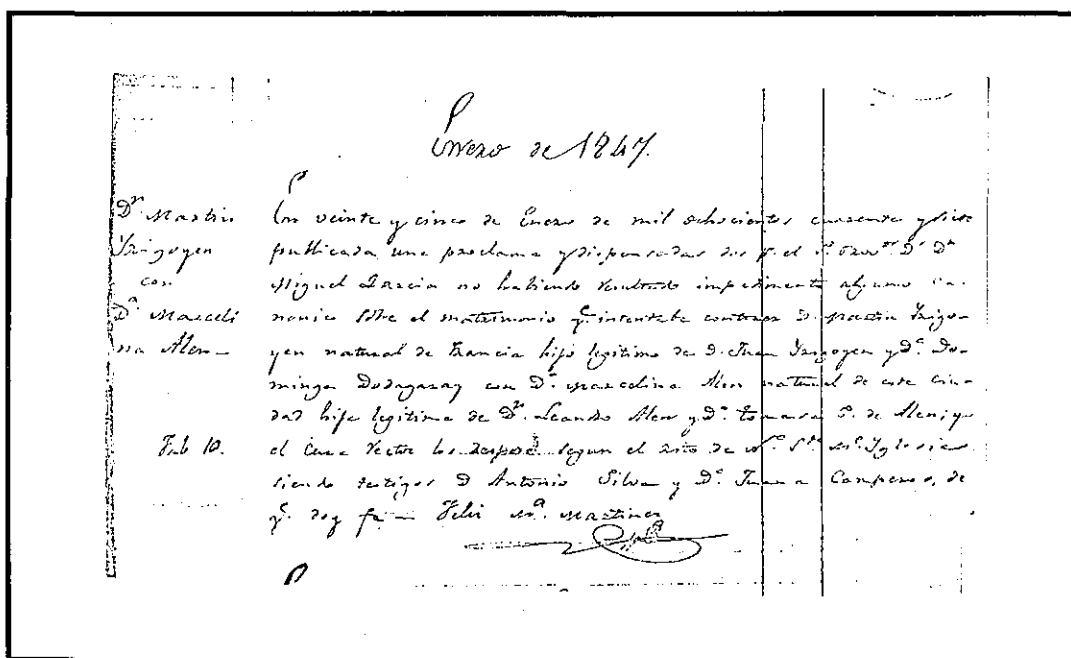 Enero de 1847.
Dn. Martin
Yrigoyen
con
Da. Marceli
na Alen
Feb 10.
En veinte y cinco de Enero de mil ochocientos cuarenta y siete
publicada una proclama y dispensadas dos p. el Sr. Provor. Dr. Dn
Miguel Garcia no habiendo resultado impedimento alguno Ca-
nonico sobre el matrimonio q. intentaba contraer D. Martin Yrigo-
yen natural de Francia hijo legitimo de D. Juan Yrigoyen y Da. Do-
minga Dodagaray con Da. Marcelina Alen natural de esta Ciu-
dad hija legitima de Dn. Leandro Alen y Da. Tomasa P. de Alen; y
el Cura Rector los desposó segun el rito de Na. Sta. Me. Yglesia
siendo testigos D Antonio Silva y Da. Juana Camperos, de
q. doy fe = Felix Ma. Martinez